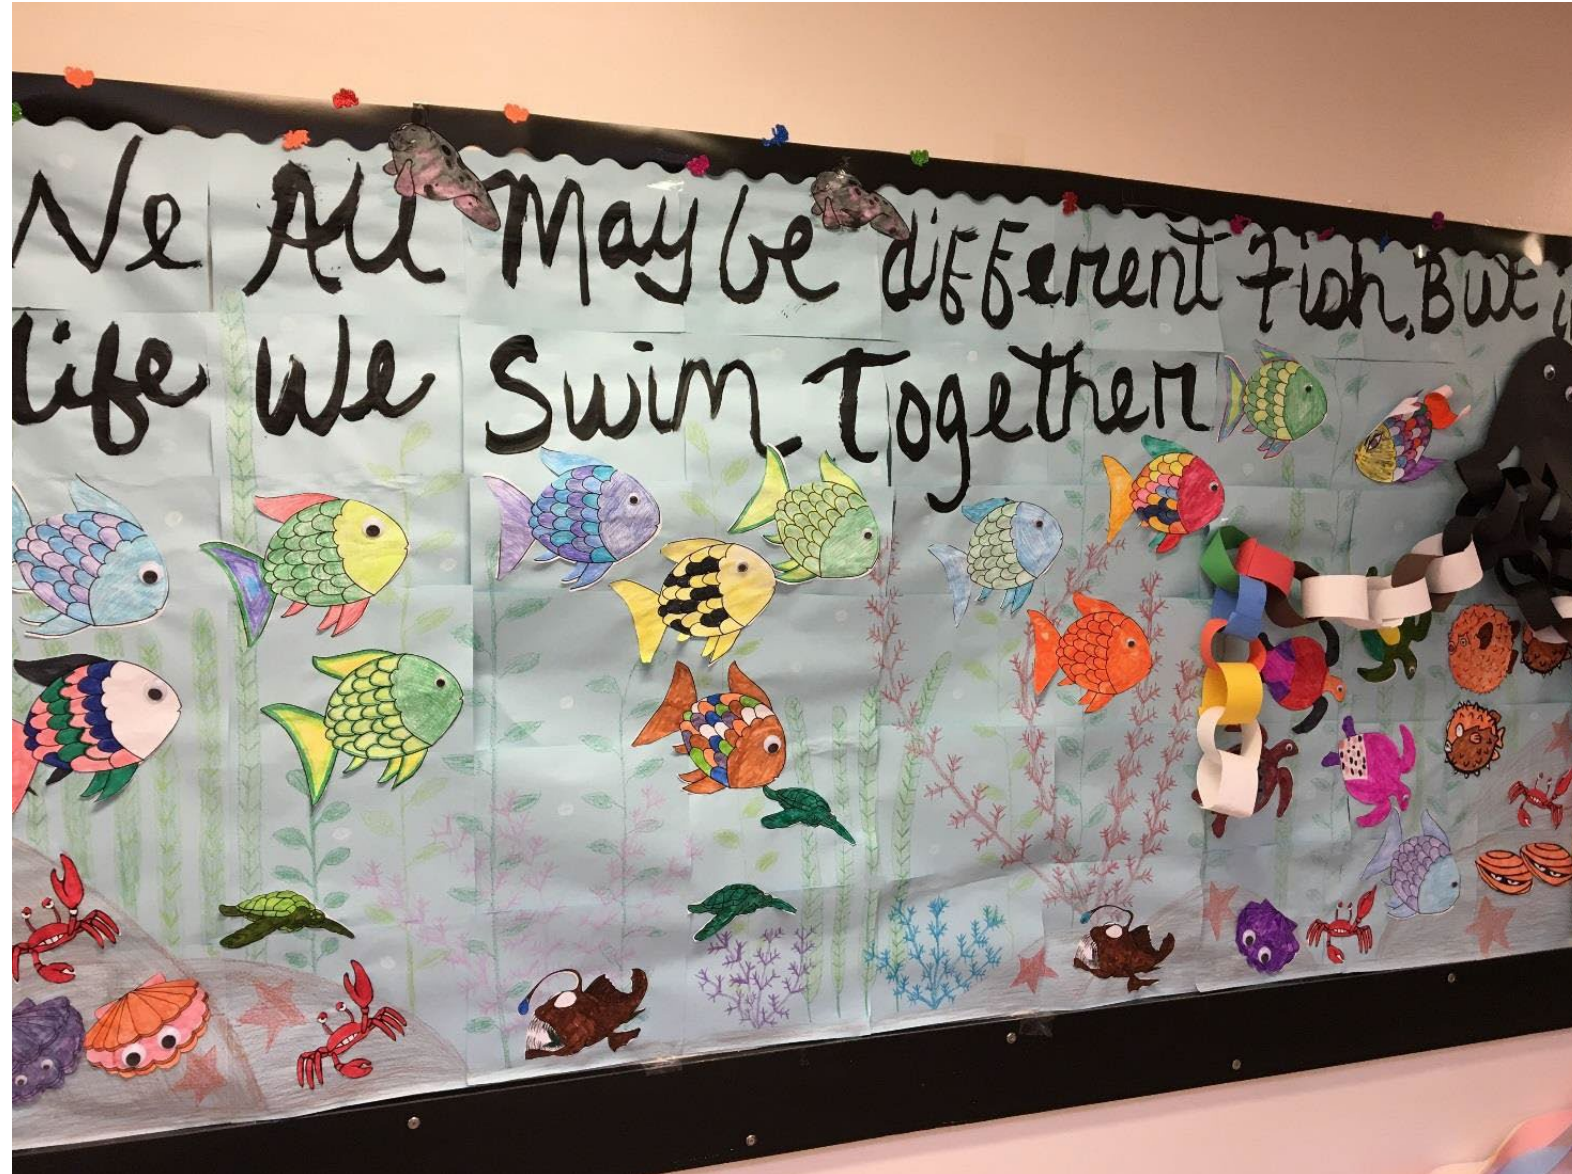 We All May be different Fish, But i
life We Swim Together